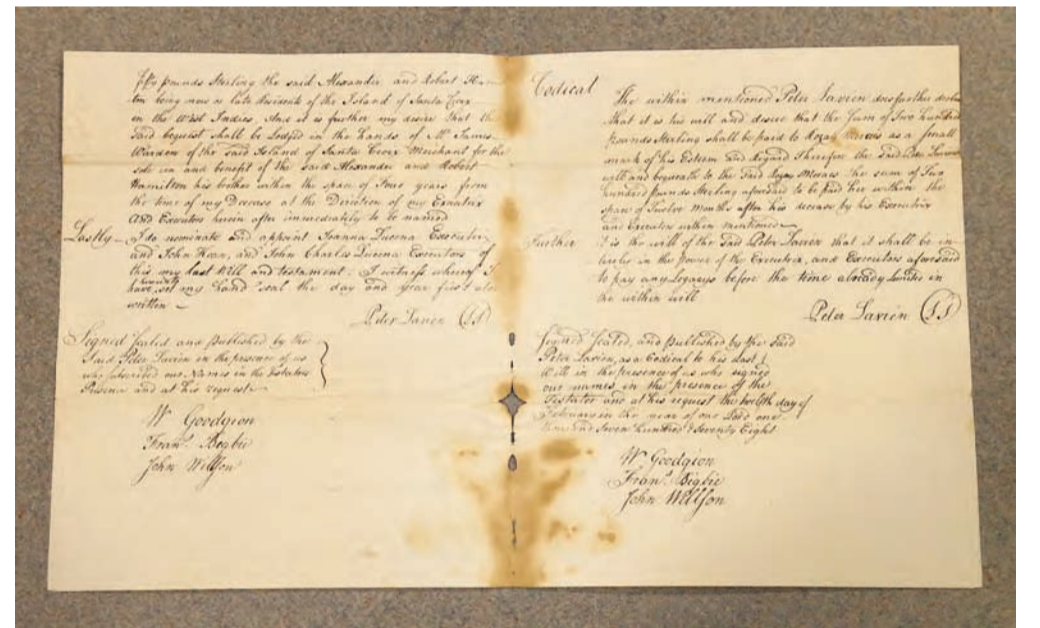 fifty pounds Sterling the said Alexander and Robert Ham
ton being now or late Residents of the Island of Santa Croix
in the West Indies, And it is further my desire that the
said bequest shall be Lodged in the hands of Mr. James
of the said Island of Santa Croix Merchant for the
sole and benefit of the said Alexander and Robert
Hamilton his brother within the space of Four years from
the time of my Decease at the Direction of my Executrix
and Executors herein after immediately to be named
Lastly — I do nominate and appoint Joanna Lucena Executrix
and John Kean, and John Charles Lucena Executors of
this my last Will and testament. I witness whereof I
have hereunto set my hand seal the day and year first
written —
Peter Lavien (LS)
Signed Sealed and published by the
Said Peter Lavien in the presence of us
who subscribed our Names in the testators
Presence and at his request —
W Goodgion
Fran.s Begbie
John Willson
Codical
The within mentioned Peter Lavien does further
that it is his will and desire that the Sum of Two hundred
pounds Sterling shall be paid to as a small
mark of his Esteem and Regard Therefore the Said Peter Lavien
will and bequeath to the Said the sume of Two
hundred pounds Sterling aforesaid to be paid her within the
space of Twelve Months after his decease by his Executrix
and Executors within mentioned —
Further It is the will of the Said Peter Lavien that it shall be in
in the power of the Executrix, and Executors aforesaid
to pay any Legacys before the time already limited in
the within will
Peter Lavien (LS)
Signed Sealed, and published by the Said
Peter Lavien, as a Codical to his last
Will in the presence of us who signed
our names in the presence of the
Testator and at his request the twelfth day of
February in the year of our Lord one
thousand Seven hundred & Seventy Eight
W Goodgion
Fran.s Bigbie
John Willson